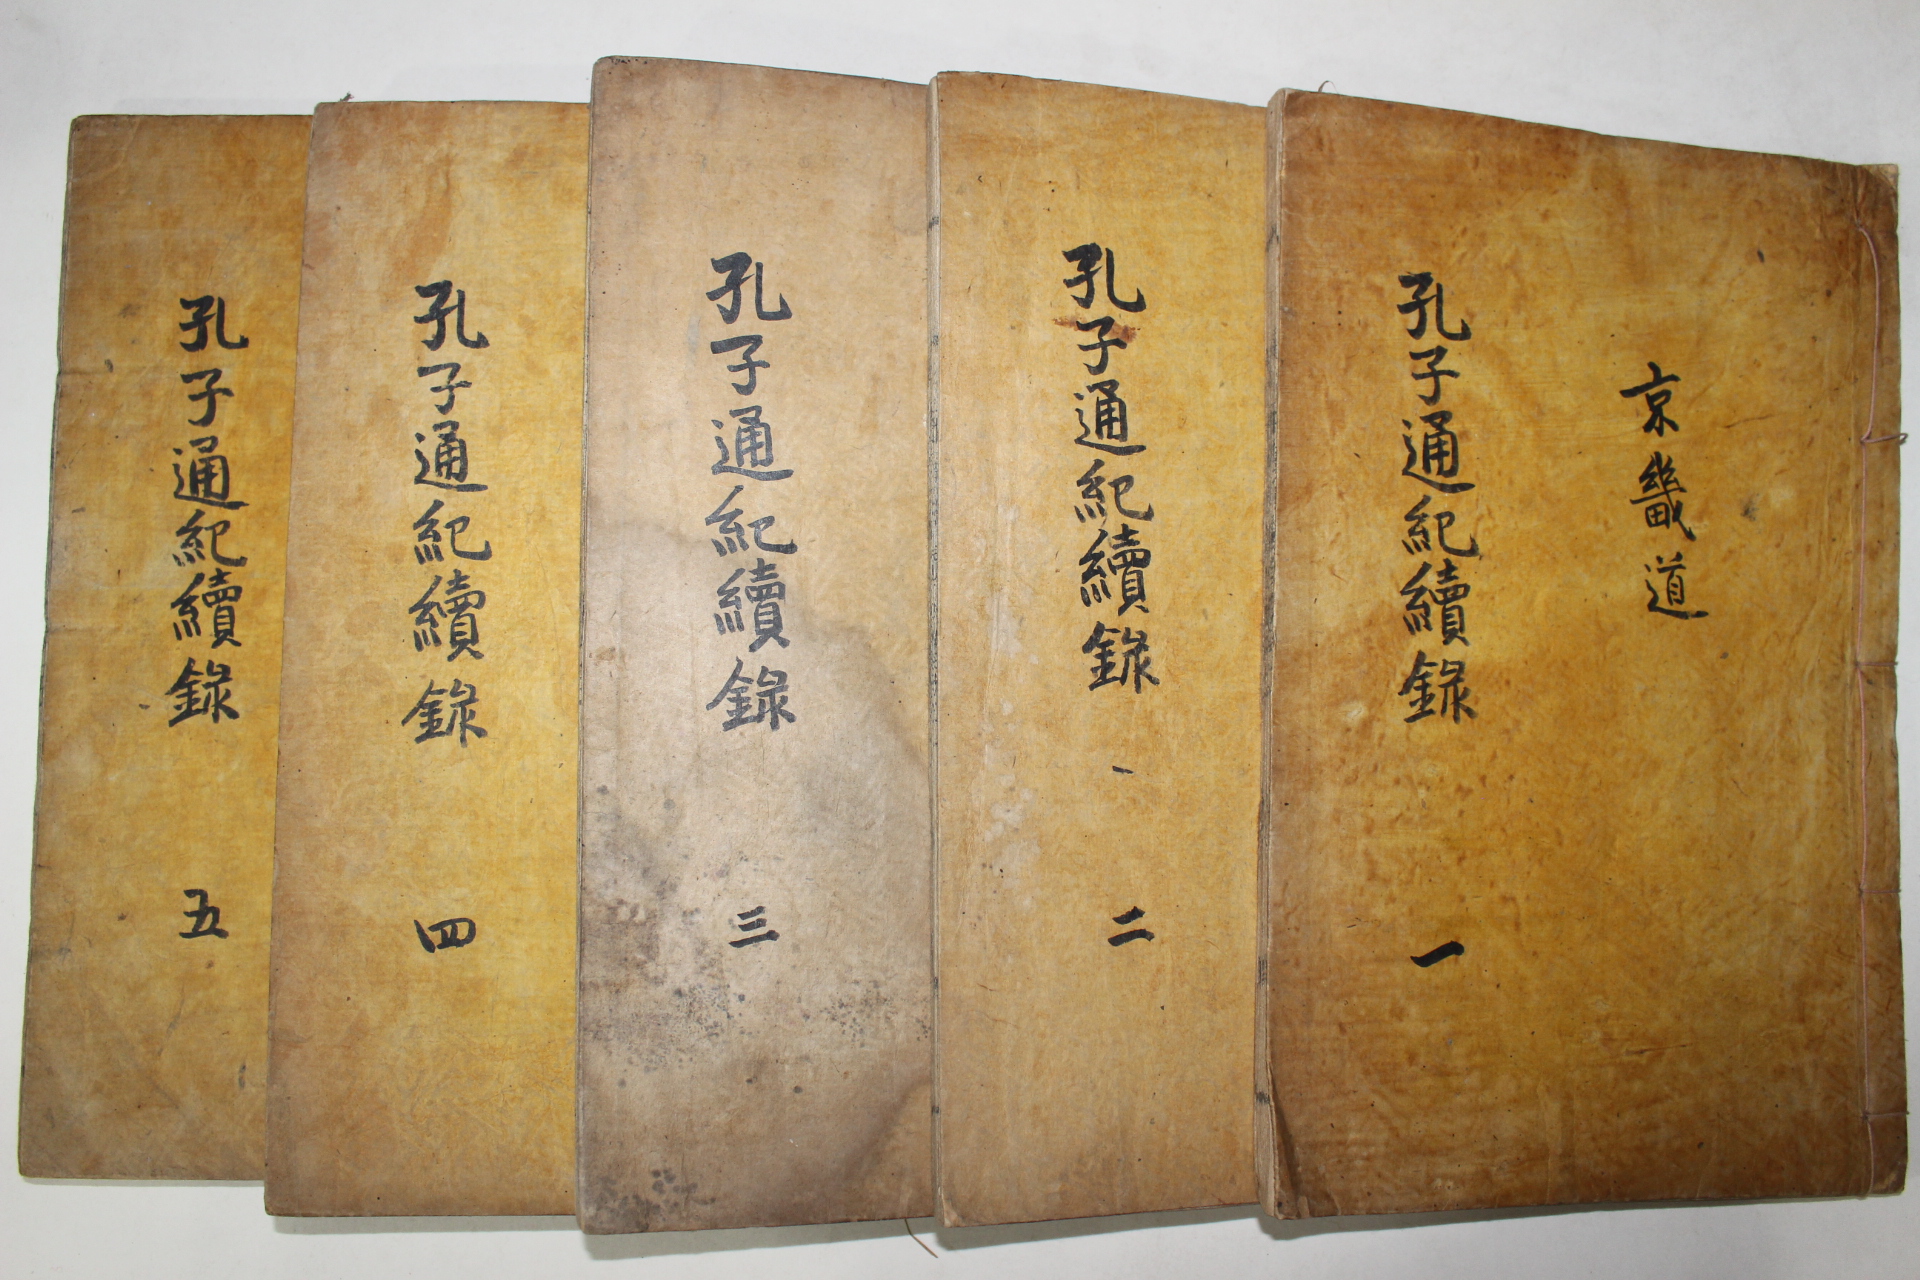 京畿道
孔子通紀續錄 一
孔子通紀續錄 二
孔子通紀續錄 三
孔子通紀續錄 四
孔子通紀續錄 五